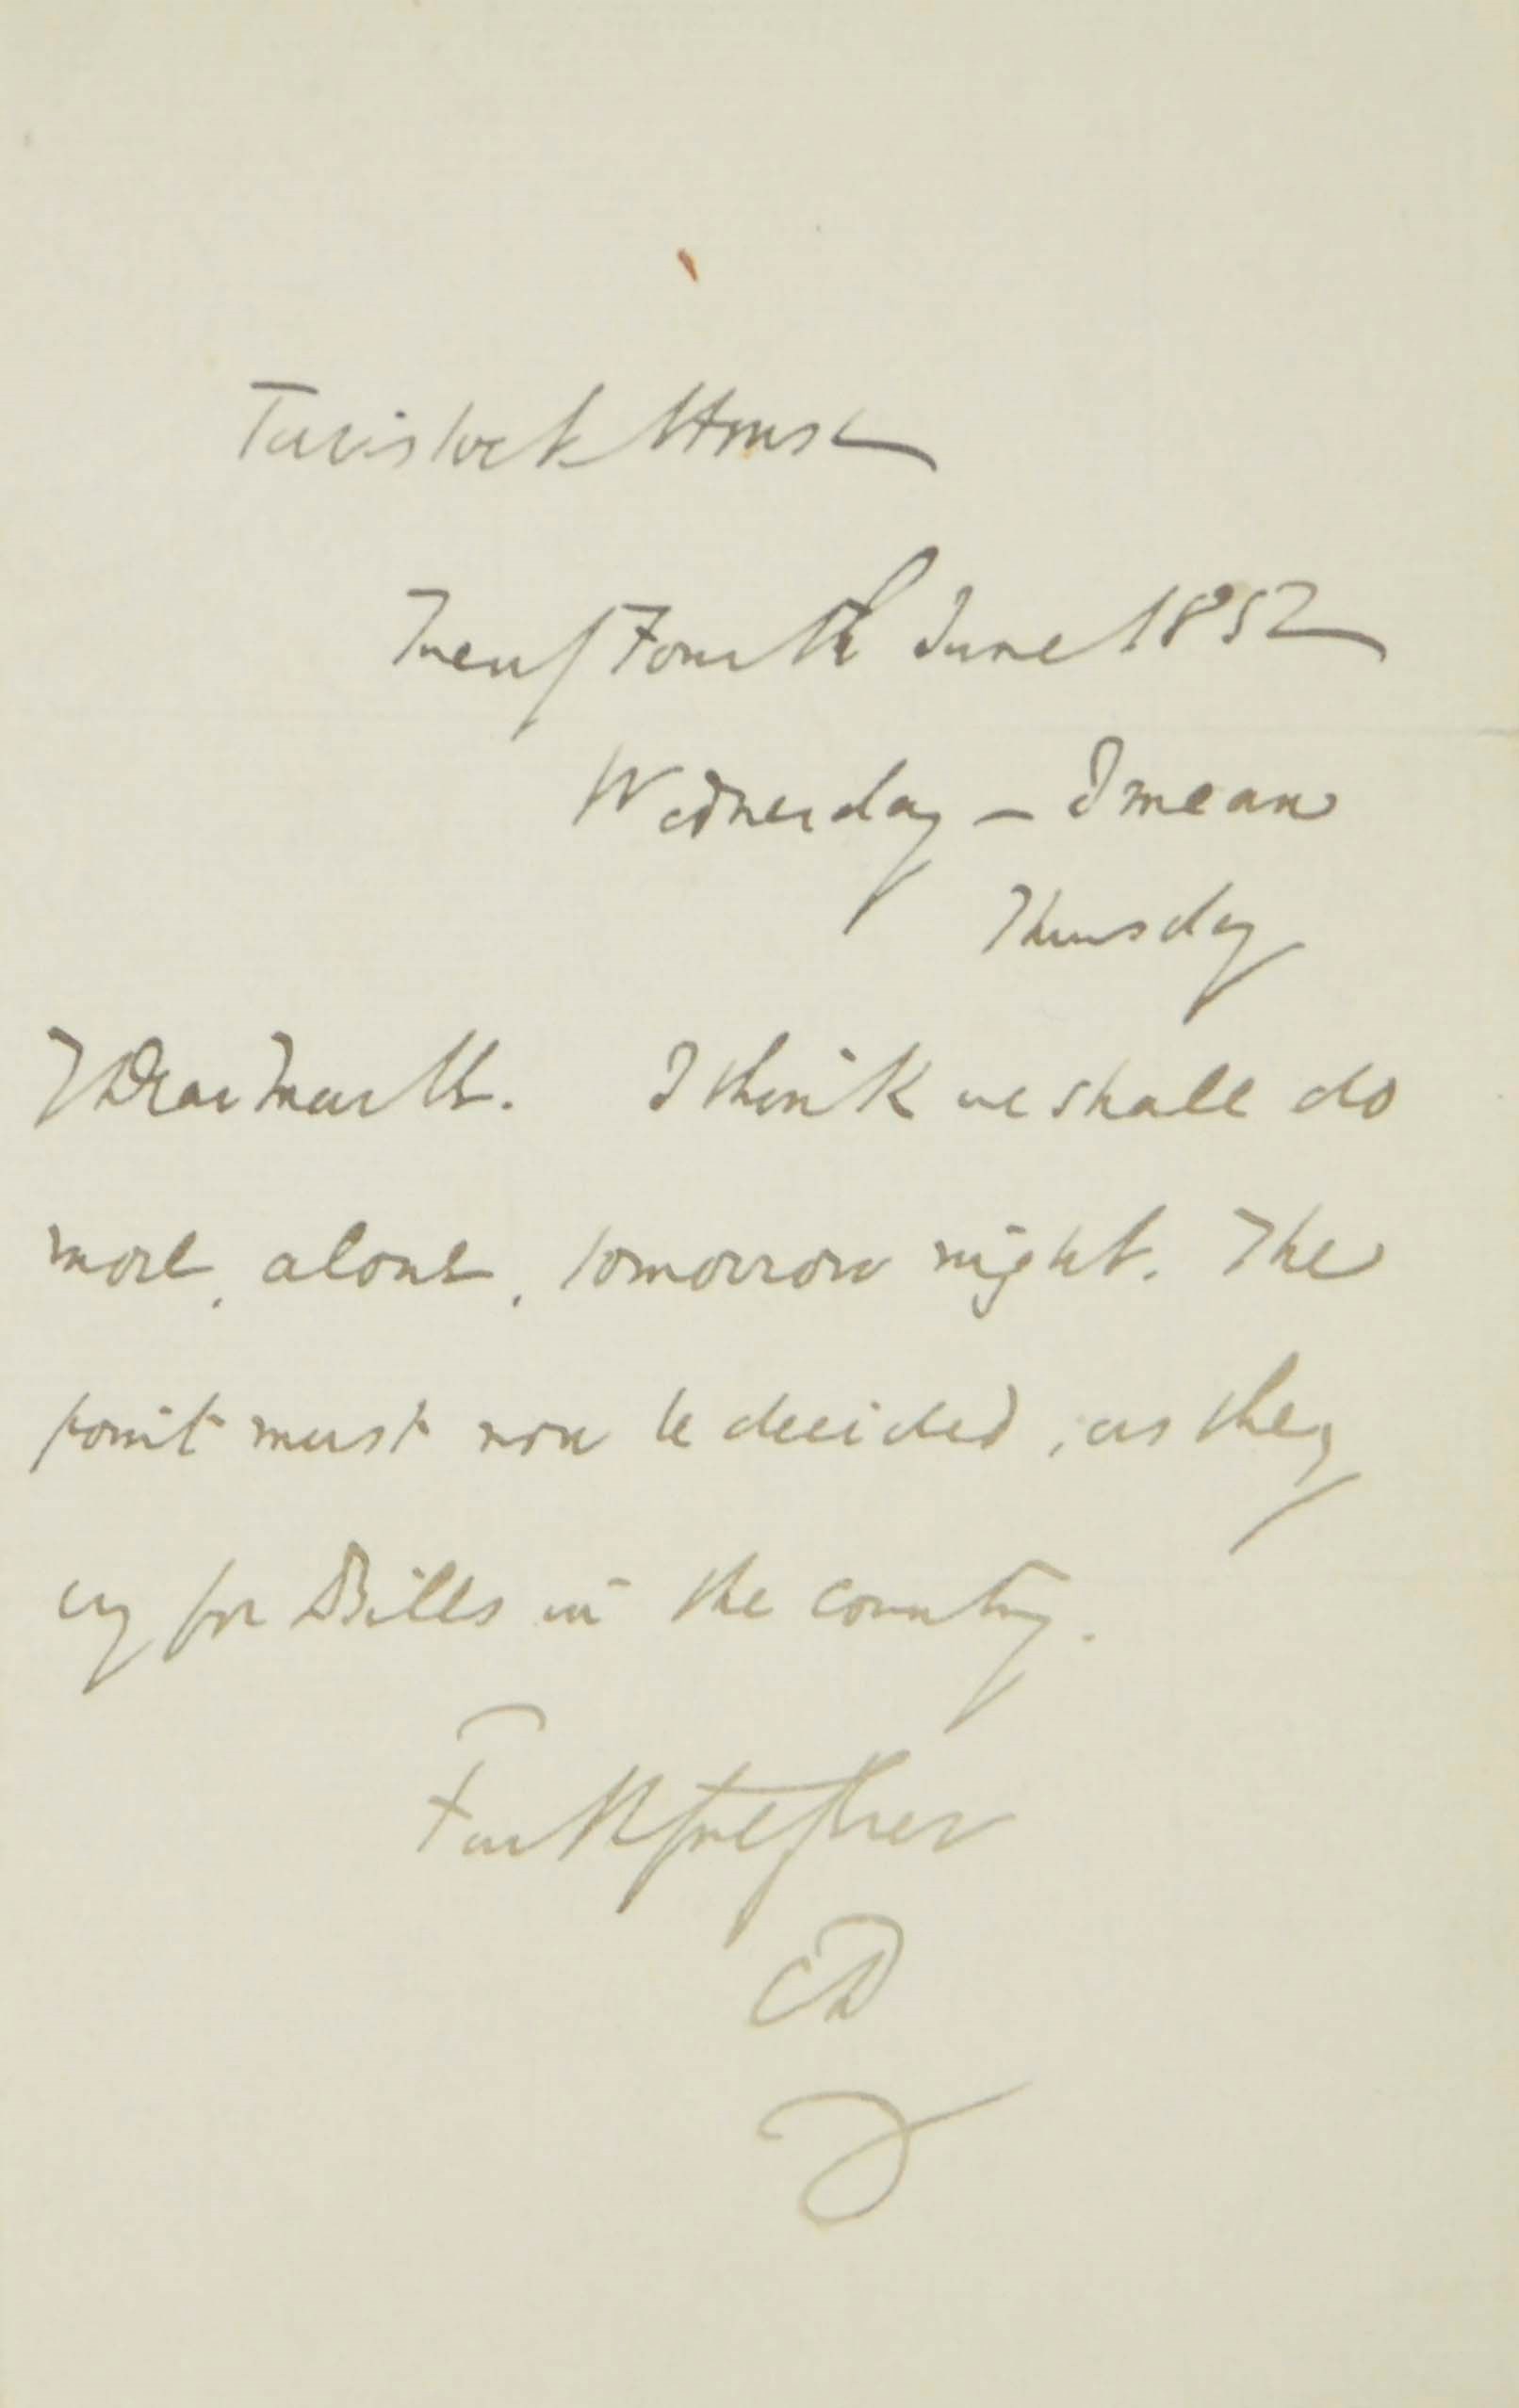 Tavistock House
Twenty Fourth June 1852
Wednesday – I mean
Thursday
My Dear Mark. I think we shall do
more, alone, tomorrow night. The
point must now be decided, as they
cry for Bills in the country.
Faithfully Ever
CD